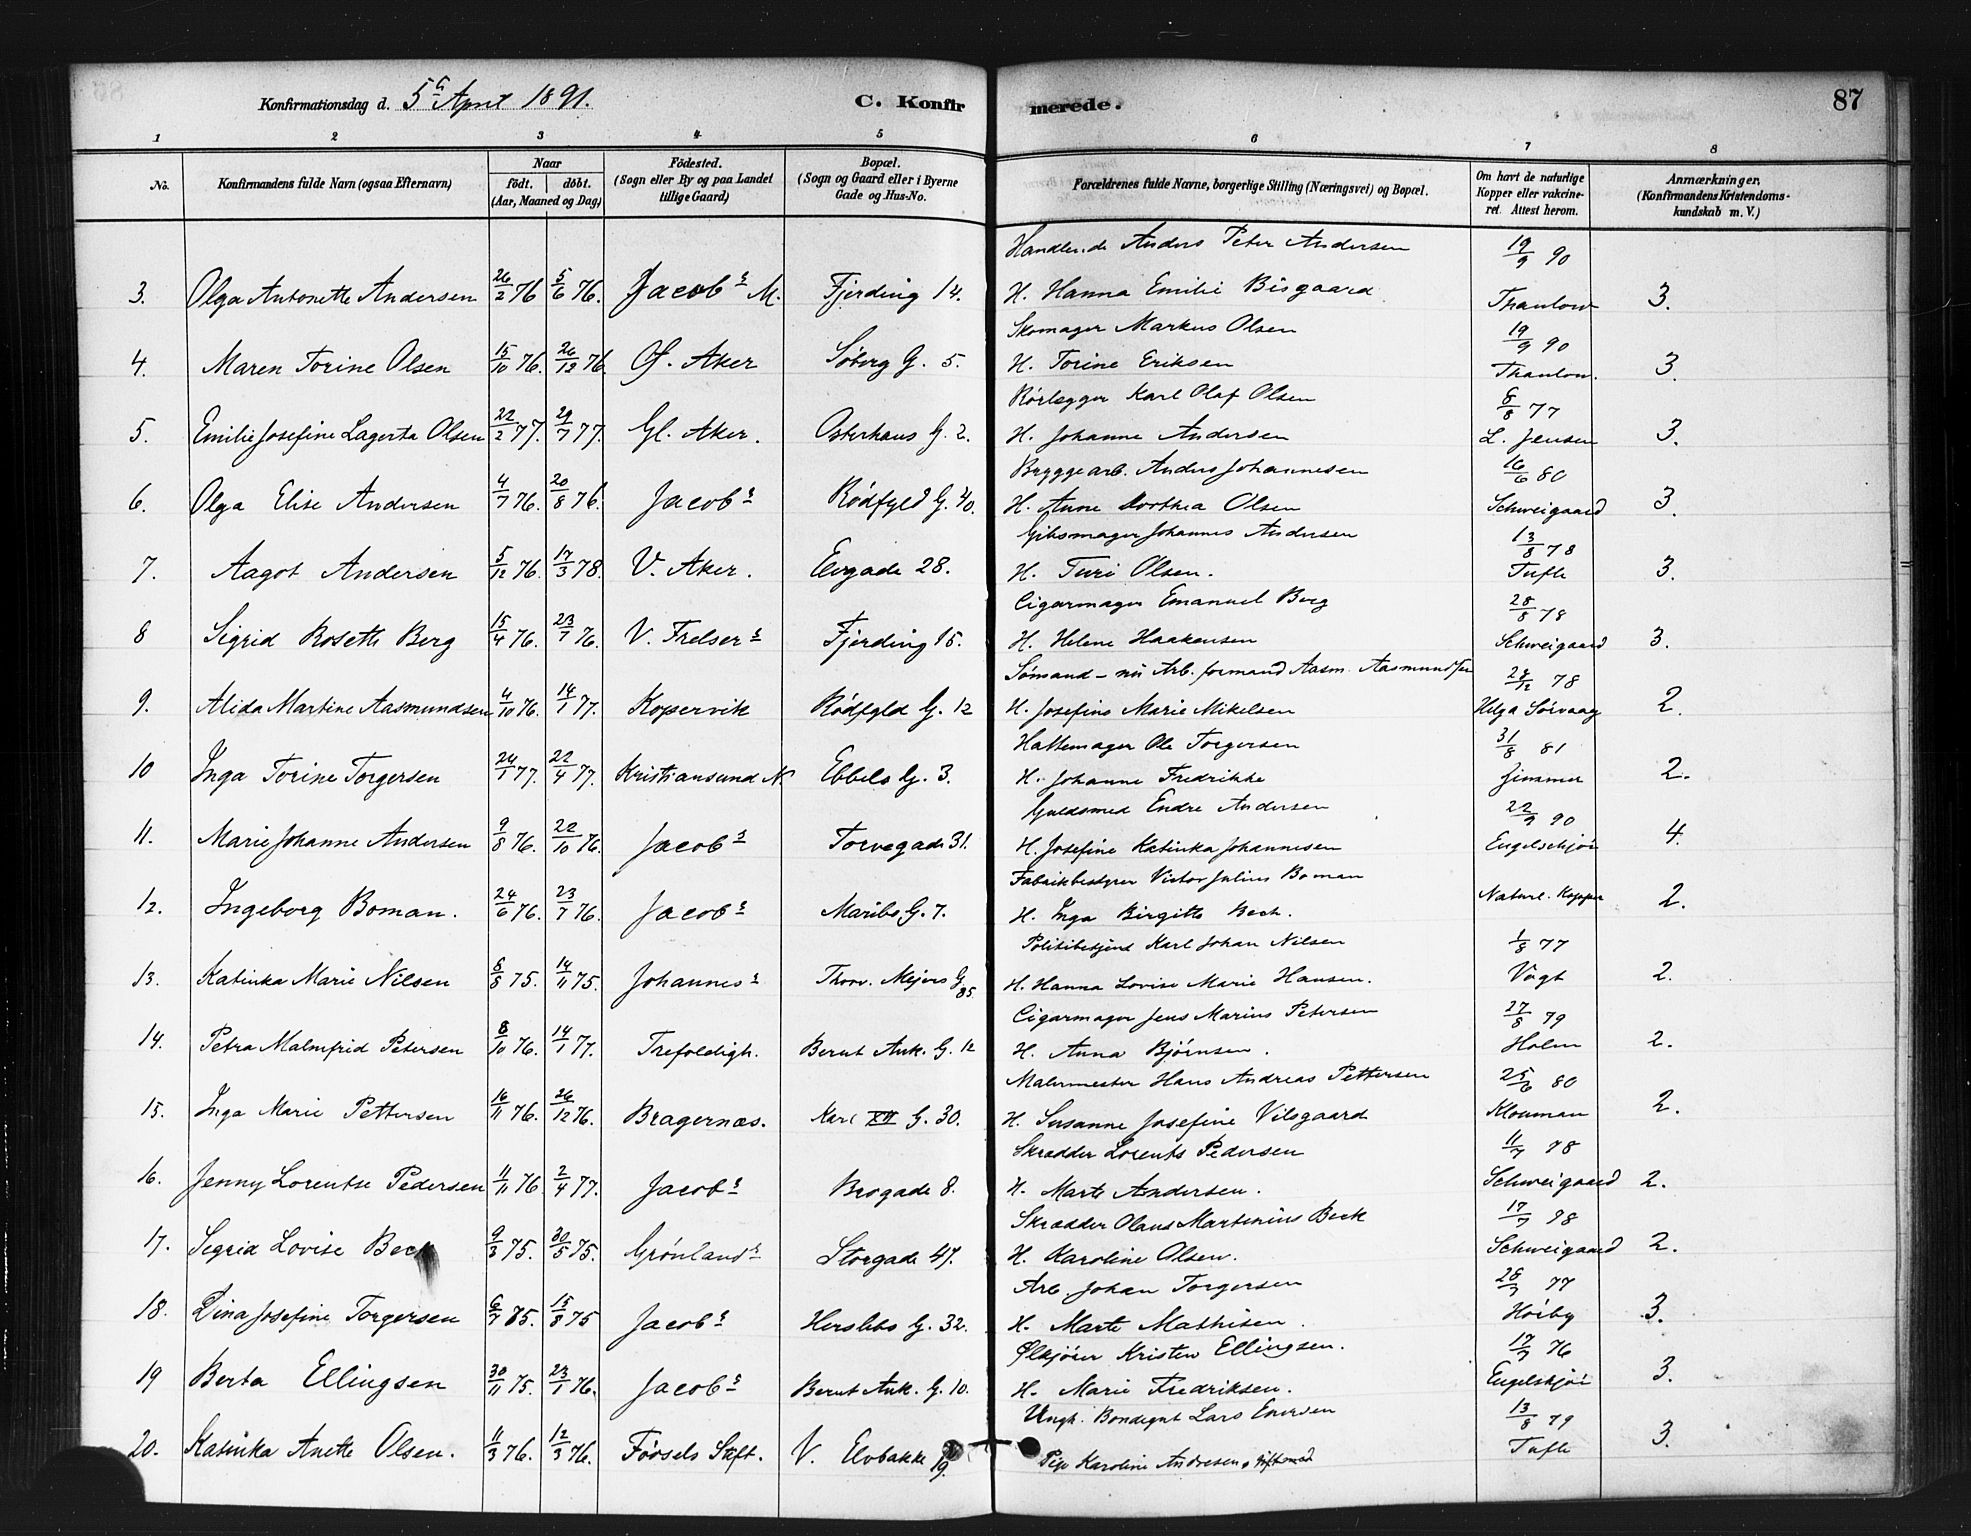 Konfirmationsdag d. 5te April 1891. C. Konfirmerede. 87
1 2 3 4 5 6 7 8
No. Konfirmandens fulde Navn (ogsaa Efternavn) Naar födt. döbt. (Aar, Maaned og Dag) Födested. (Sogn eller By og paa Landet tillige Gaard) Bopæl. (Sogn og Gaard eller i Byerne Gade og Hus-No. Forældrenes fulde Navne, borgerlige Stilling (Næringsvei) og Bopæl. Om havt de naturlige Kopper eller vakcineret. Attest herom. Anmærkninger. (Konfirmandens Kristendomskundskab m. V.)
Handlende Anders Peter Andersen 19/9 90
3. Olga Antonette Andersen 26/2 76 5/6 76. Jacobs M. Fjerding 14. H. Hanna Emilie Bisgaard Thaulow 3.
Skomager Markus Olsen 19/9 90
4. Maren Torine Olsen 15/10 76. 26/12 76 Ø. Aker Söberg G. 5. H. Torine Eriksen Thaulow. 3.
Rörlægger Karl Olaf Olsen 8/8 77
5. Emilie Josefine Lagerta Olsen 22/2 77. 29/7 77. Gl. Aker. Osterhaus G. 2. H. Johanne Andersen L. Jensen 3.
Bryggearb. Anders Johannesen 16/6 80
6. Olga Elise Andersen 4/7 76. 20/8 76. Jacobs Rödfyld G. 40. H. Anne Dorthea Olsen Schweigaard 3.
Gibsmager Johannes Andersen 13/8 78
7. Aagot Andersen 5/12 76. 17/3 78. V. Aker. Elvgade 28. H. Turi Olsen. Tufte 3.
Cigarmager Emanuel Berg 28/8 78
8 Sigrid Rosette Berg 15/4 76. 23/7 76. V. Frelsers Fjerding 15. H. Helene Haakensen Schweigaard 3.
Sömand - nu Arb. formand Aasm. Aasmundsen 28/12 78
9. Alida Martine Aasmundsen 4/10 76. 14/1 77. Kopervik Rödfyld G. 12 H. Josefine Marie Mikelsen Helga Sörvaag 2.
Hattemager Ole Torgersen 31/8 81
10 Inga Torine Torgersen 24/1 77. 22/4 77. Kristiansund N. Ebbels G. 3. H. Johanne Fredrikke Zimmer 2.
Guldsmed Endre Andersen 22/9 90
11. Marie Johanne Andersen 9/8 76. 22/10 76. Jacobs Torvegade 31. H. Josefine Katinka Johannesen Engelschjön 4.
Fabrikbestyrer Victor Julius Boman
12. Ingeborg Boman. 24/6 76. 23/7 76. Jacobs Maribo G. 7. H. Inga Birgitte Bech. Naturl. Kopper 2.
Politibetjent Karl Johan Nilsen 1/8 77
13. Katinka Marie Nilsen 8/8 75. 14/11 75. Johannes Thorv. Mejers G. 85. H. Hanna Lovise Marie Hansen. Vogt 2.
Cigarmager Jens Marius Petersen 27/8 79
14. Petra Malmfrid Petersen 8/10 76. 14/1 77. Trefoldigh. Bernt Ank. G. 12 H. Anna Björnsen. Holm 2.
Malermester Hans Andreas Pettersen 25/6 80
15. Inga Marie Pettersen 16/11 76. 26/12 76. Bragernæs. Karl XII G. 30. H. Susanne Josefine Vilsgaard Klouman 2.
Skrædder Lorents Pedersen 11/7 78
16. Jenny Lorentse Pedersen 11/11 76. 2/4 77. Jacobs Brogade 8. H. Marte Andersen. Schweigaard 2.
Skrædder Olaus Martinius Beck 17/7 98
17. Sigrid Lovise Beck 9/3 75. 30/5 75. Grönlands Storgade 47. H. Karoline Olsen. Schweigaard 2.
Arb Johan Torgersen 28/7 77
18. Dina Josefine Torgersen 6/7 85. 15/8 75 Jacobs Herslebs G. 32. H. Marte Mathisen. Höiby 3.
Ølkjörer Kristen Ellingsen. 17/7 76
19 Berta Ellingsen 30/11 75. 23/1 76. Jacobs Bernt Ank. G. 10. H. Marie Fredriksen. Engelskjön 3.
Ungk. Bondegut Lars Iversen 13/8 79
20. Katinka Anette Olsen. 11/3 76. 12/3 76. Födsels Stift. V. Elvbakke 19. Pige Karoline Andresen, gift med Tufte 3.